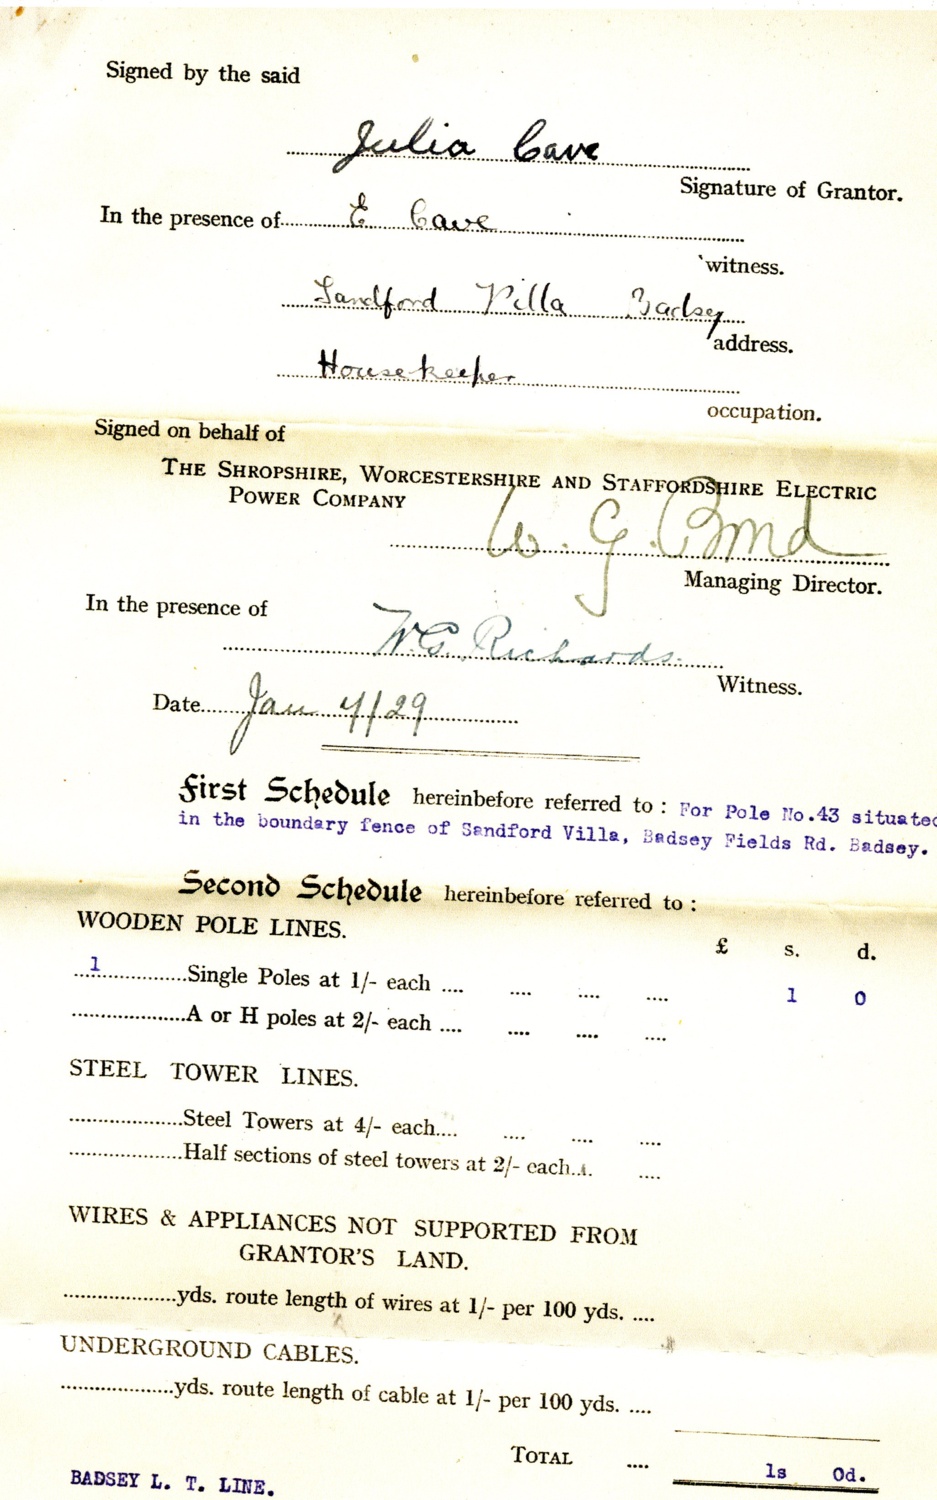 Signed by the said
Julia Cave
Signature of Grantor.
In the presence of E Cave
witness.
Sandford Villa Badsey
address.
Housekeeper
occupation.
Signed on behalf of
THE SHROPSHIRE, WORCESTERSHIRE AND STAFFORDSHIRE ELECTRIC
POWER COMPANY
W. G. Bond
Managing Director.
In the presence of
W.G. Richards.
Witness.
Date Jan 4/29
First Schedule hereinbefore referred to : For Pole No.43 situated
in the boundary fence of Sandford Villa, Badsey Fields Rd. Badsey.
Second Schedule hereinbefore referred to :
WOODEN POLE LINES.
£ s. d.
1 Single Poles at 1/- each .... .... .... .... 1 0
A or H poles at 2/- each .... .... .... ....
STEEL TOWER LINES.
Steel Towers at 4/- each.... .... .... ....
Half sections of steel towers at 2/- each... ....
WIRES & APPLIANCES NOT SUPPORTED FROM
GRANTOR'S LAND.
yds. route length of wires at 1/- per 100 yds. ....
UNDERGROUND CABLES.
yds. route length of cable at 1/- per 100 yds. ....
TOTAL .... 1s 0d.
BADSEY L. T. LINE.